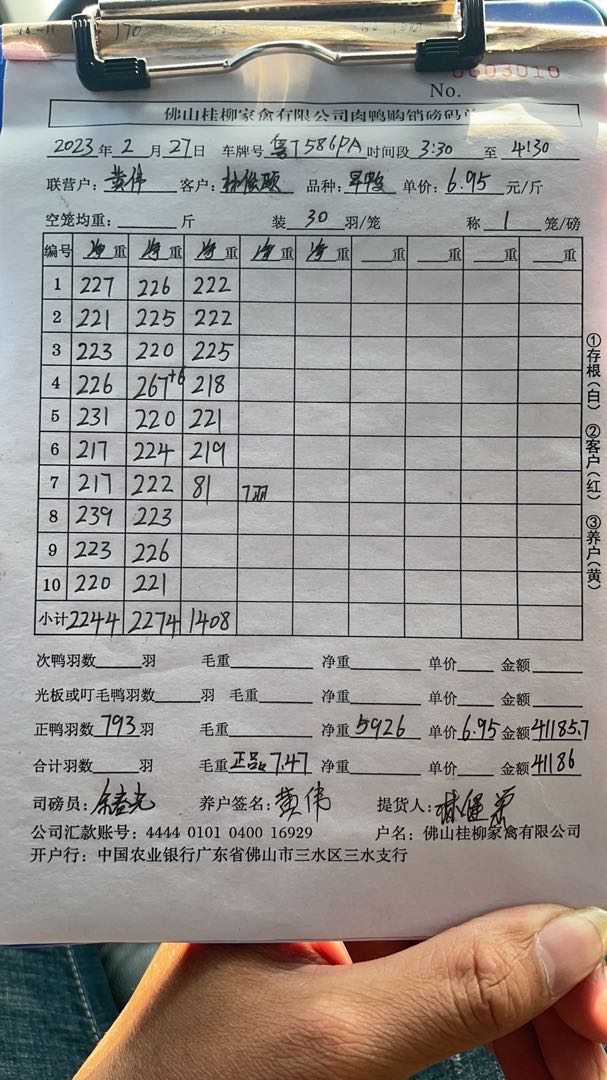 170
No. 0003010
佛山桂柳家禽有限公司肉鸭购销磅码单
2023年 2 月 27 日 车牌号 粤T586PA 时间段 3:30 至 4:30
联营户: 黄伟 客户: 品种: 单价: 6.95 元/斤
空笼均重: 斤 装 30 羽/笼 称 1 笼/磅
编号 净重 净重 净重 净重 净重 重 重 重 重
1 227 226 222
2 221 225 222
3 223 220 225
4 226 267+6 218
5 231 220 221
6 217 224 219
7 217 222 81 7羽
8 239 223
9 223 226
10 220 221
小计 2244 2274 1408
①存根(白) ②客户(红) ③养户(黄)
次鸭羽数 羽 毛重 净重 单价 金额
光板或叮毛鸭羽数 羽 毛重 净重 单价 金额
正鸭羽数 793 羽 毛重 净重 5926 单价 6.95 金额 41185.7
合计羽数 羽 毛重 正品:7.47 净重 单价 金额 41186
司磅员: 养户签名: 黄伟 提货人:
公司汇款账号: 4444 0101 0400 16929 户名: 佛山桂柳家禽有限公司
开户行: 中国农业银行广东省佛山市三水区三水支行